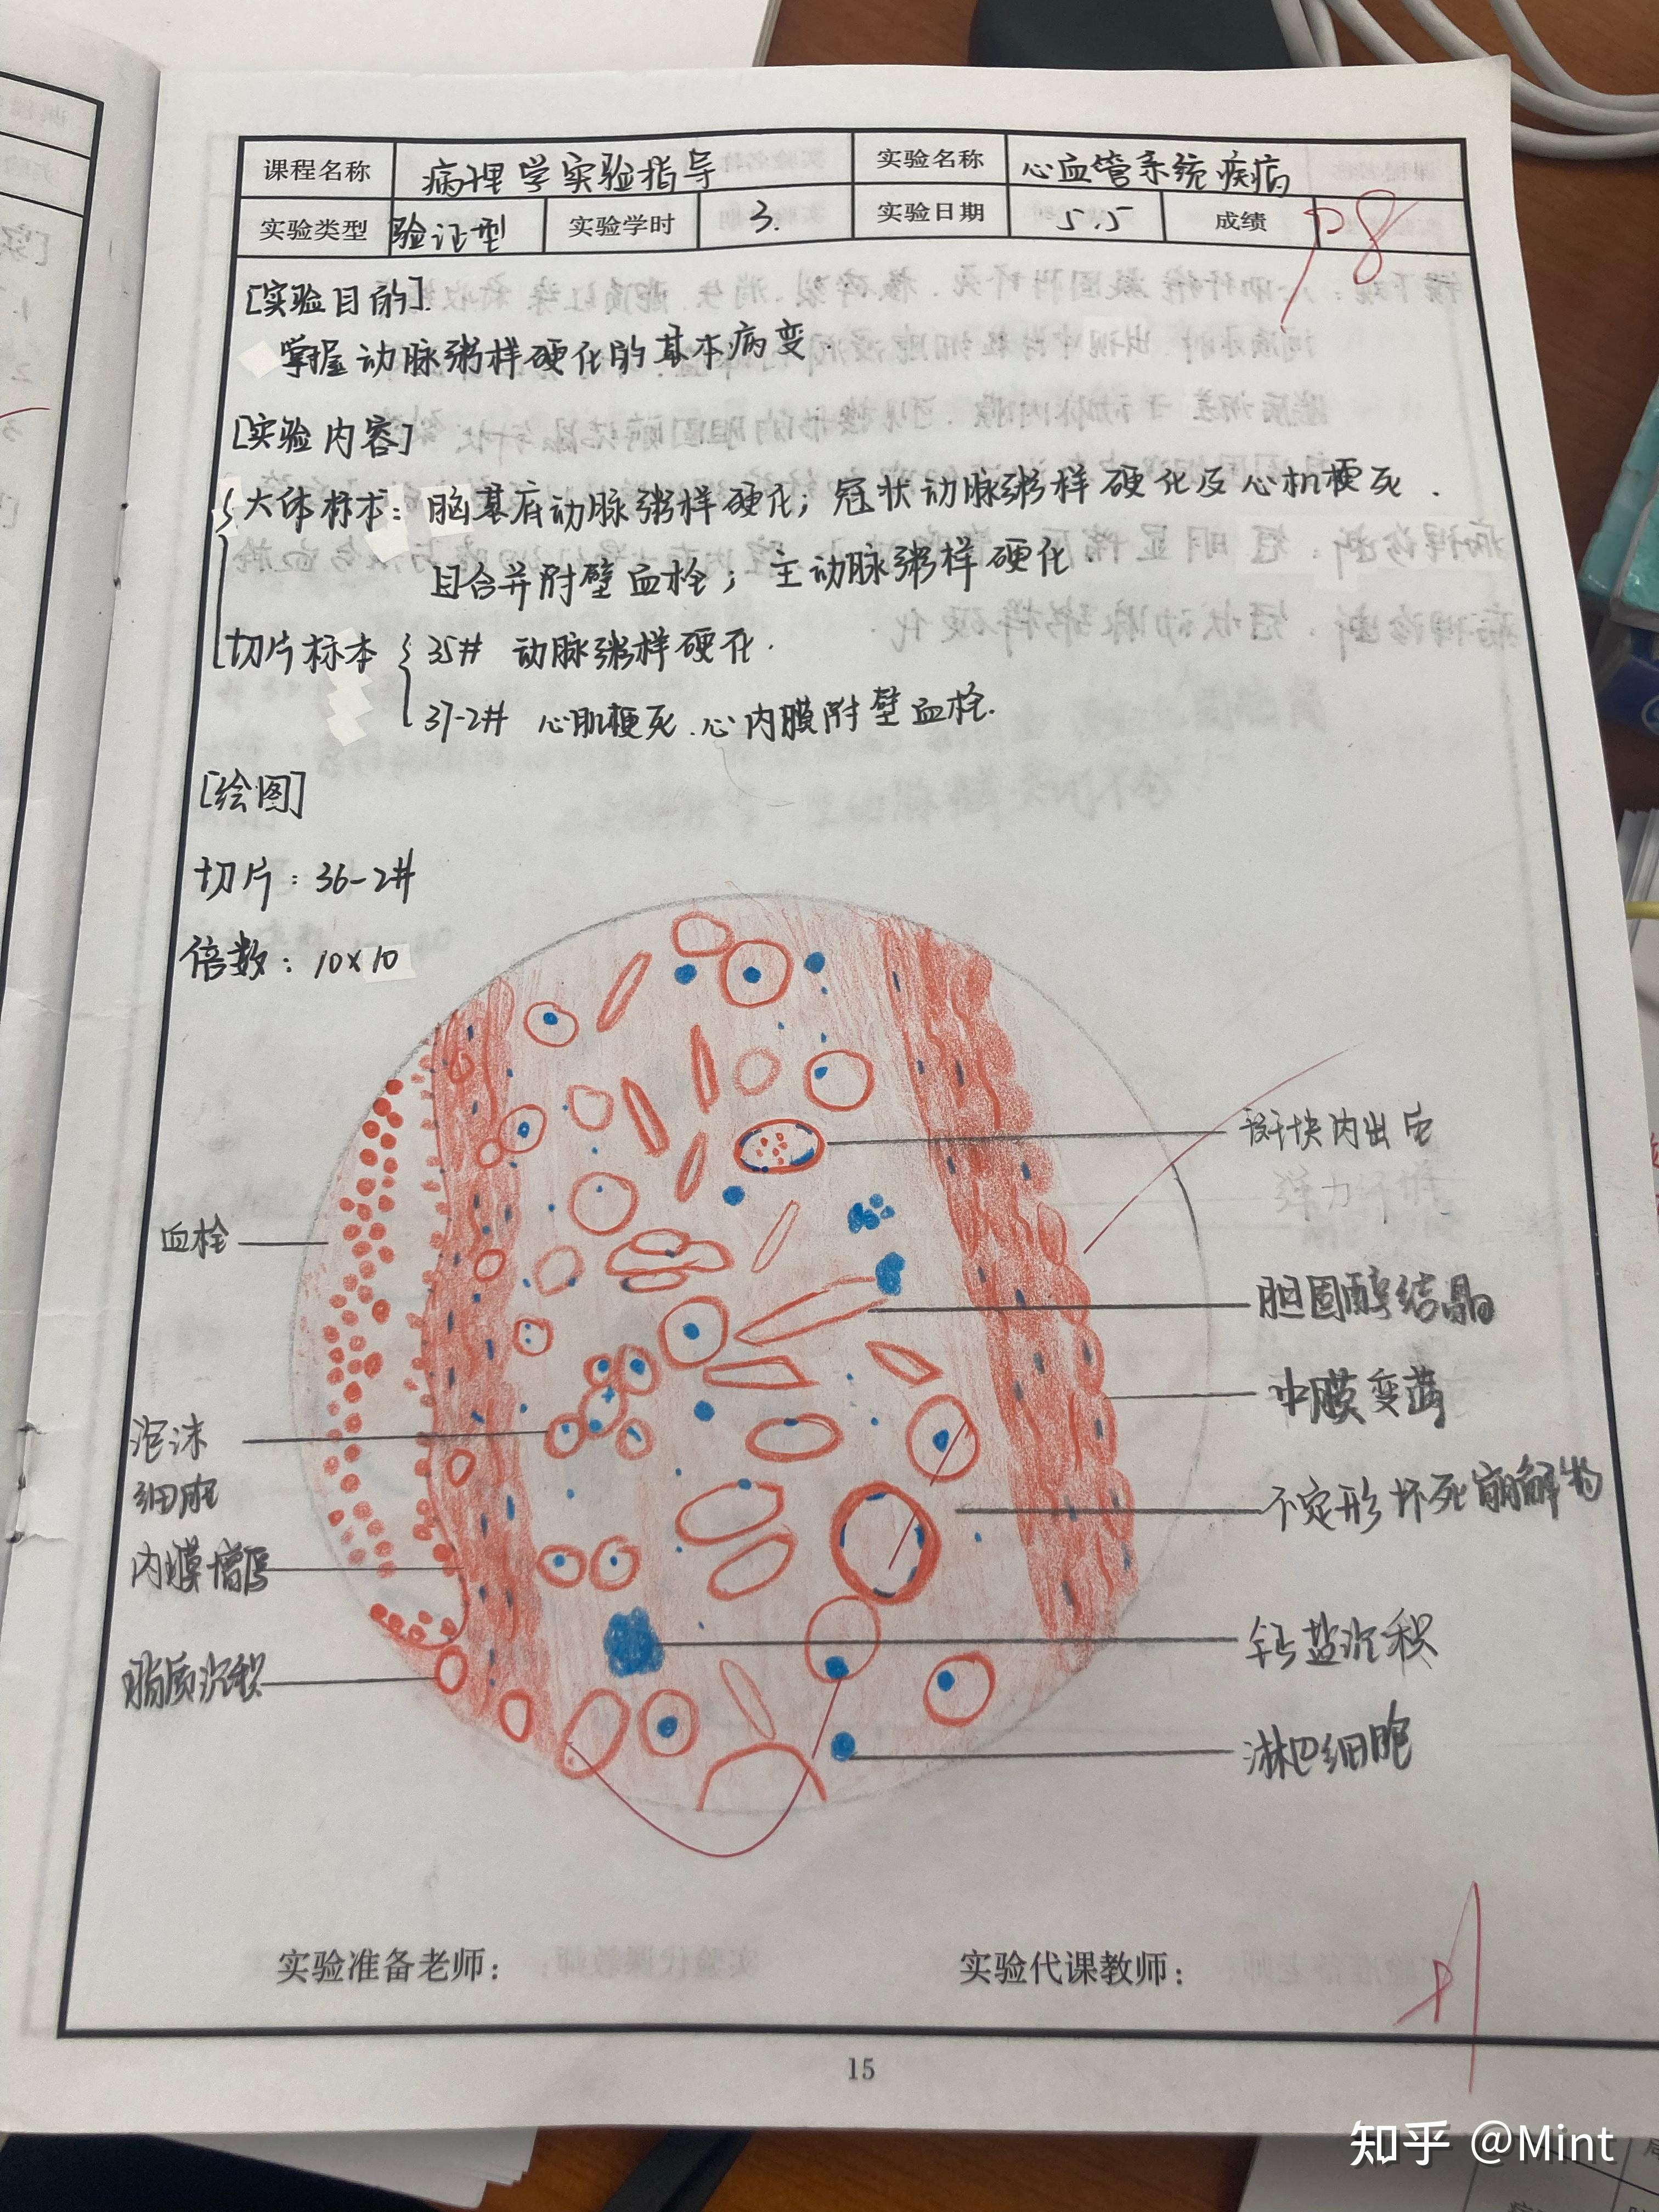 课程名称 病理学实验指导 实验名称 心血管系统疾病
实验类型 验证型 实验学时 3. 实验日期 5.5 成绩
[实验目的].
掌握动脉粥样硬化的基本病变.
[实验内容]
大体标本: 脑基底动脉粥样硬化; 冠状动脉粥样硬化及心机梗死.
且合并附壁血栓; 主动脉粥样硬化.
切片标本 35# 动脉粥样硬化.
37-2# 心肌梗死.心内膜附壁血栓.
[绘图]
切片: 36-2#
倍数: 10×10
斑块内出血
血栓
胆固醇结晶
中膜变薄
泡沫
细胞
不定形坏死崩解物
内膜增厚
钙盐沉积
脂质沉积
淋巴细胞
实验准备老师: 实验代课教师:
15
知乎 @Mint